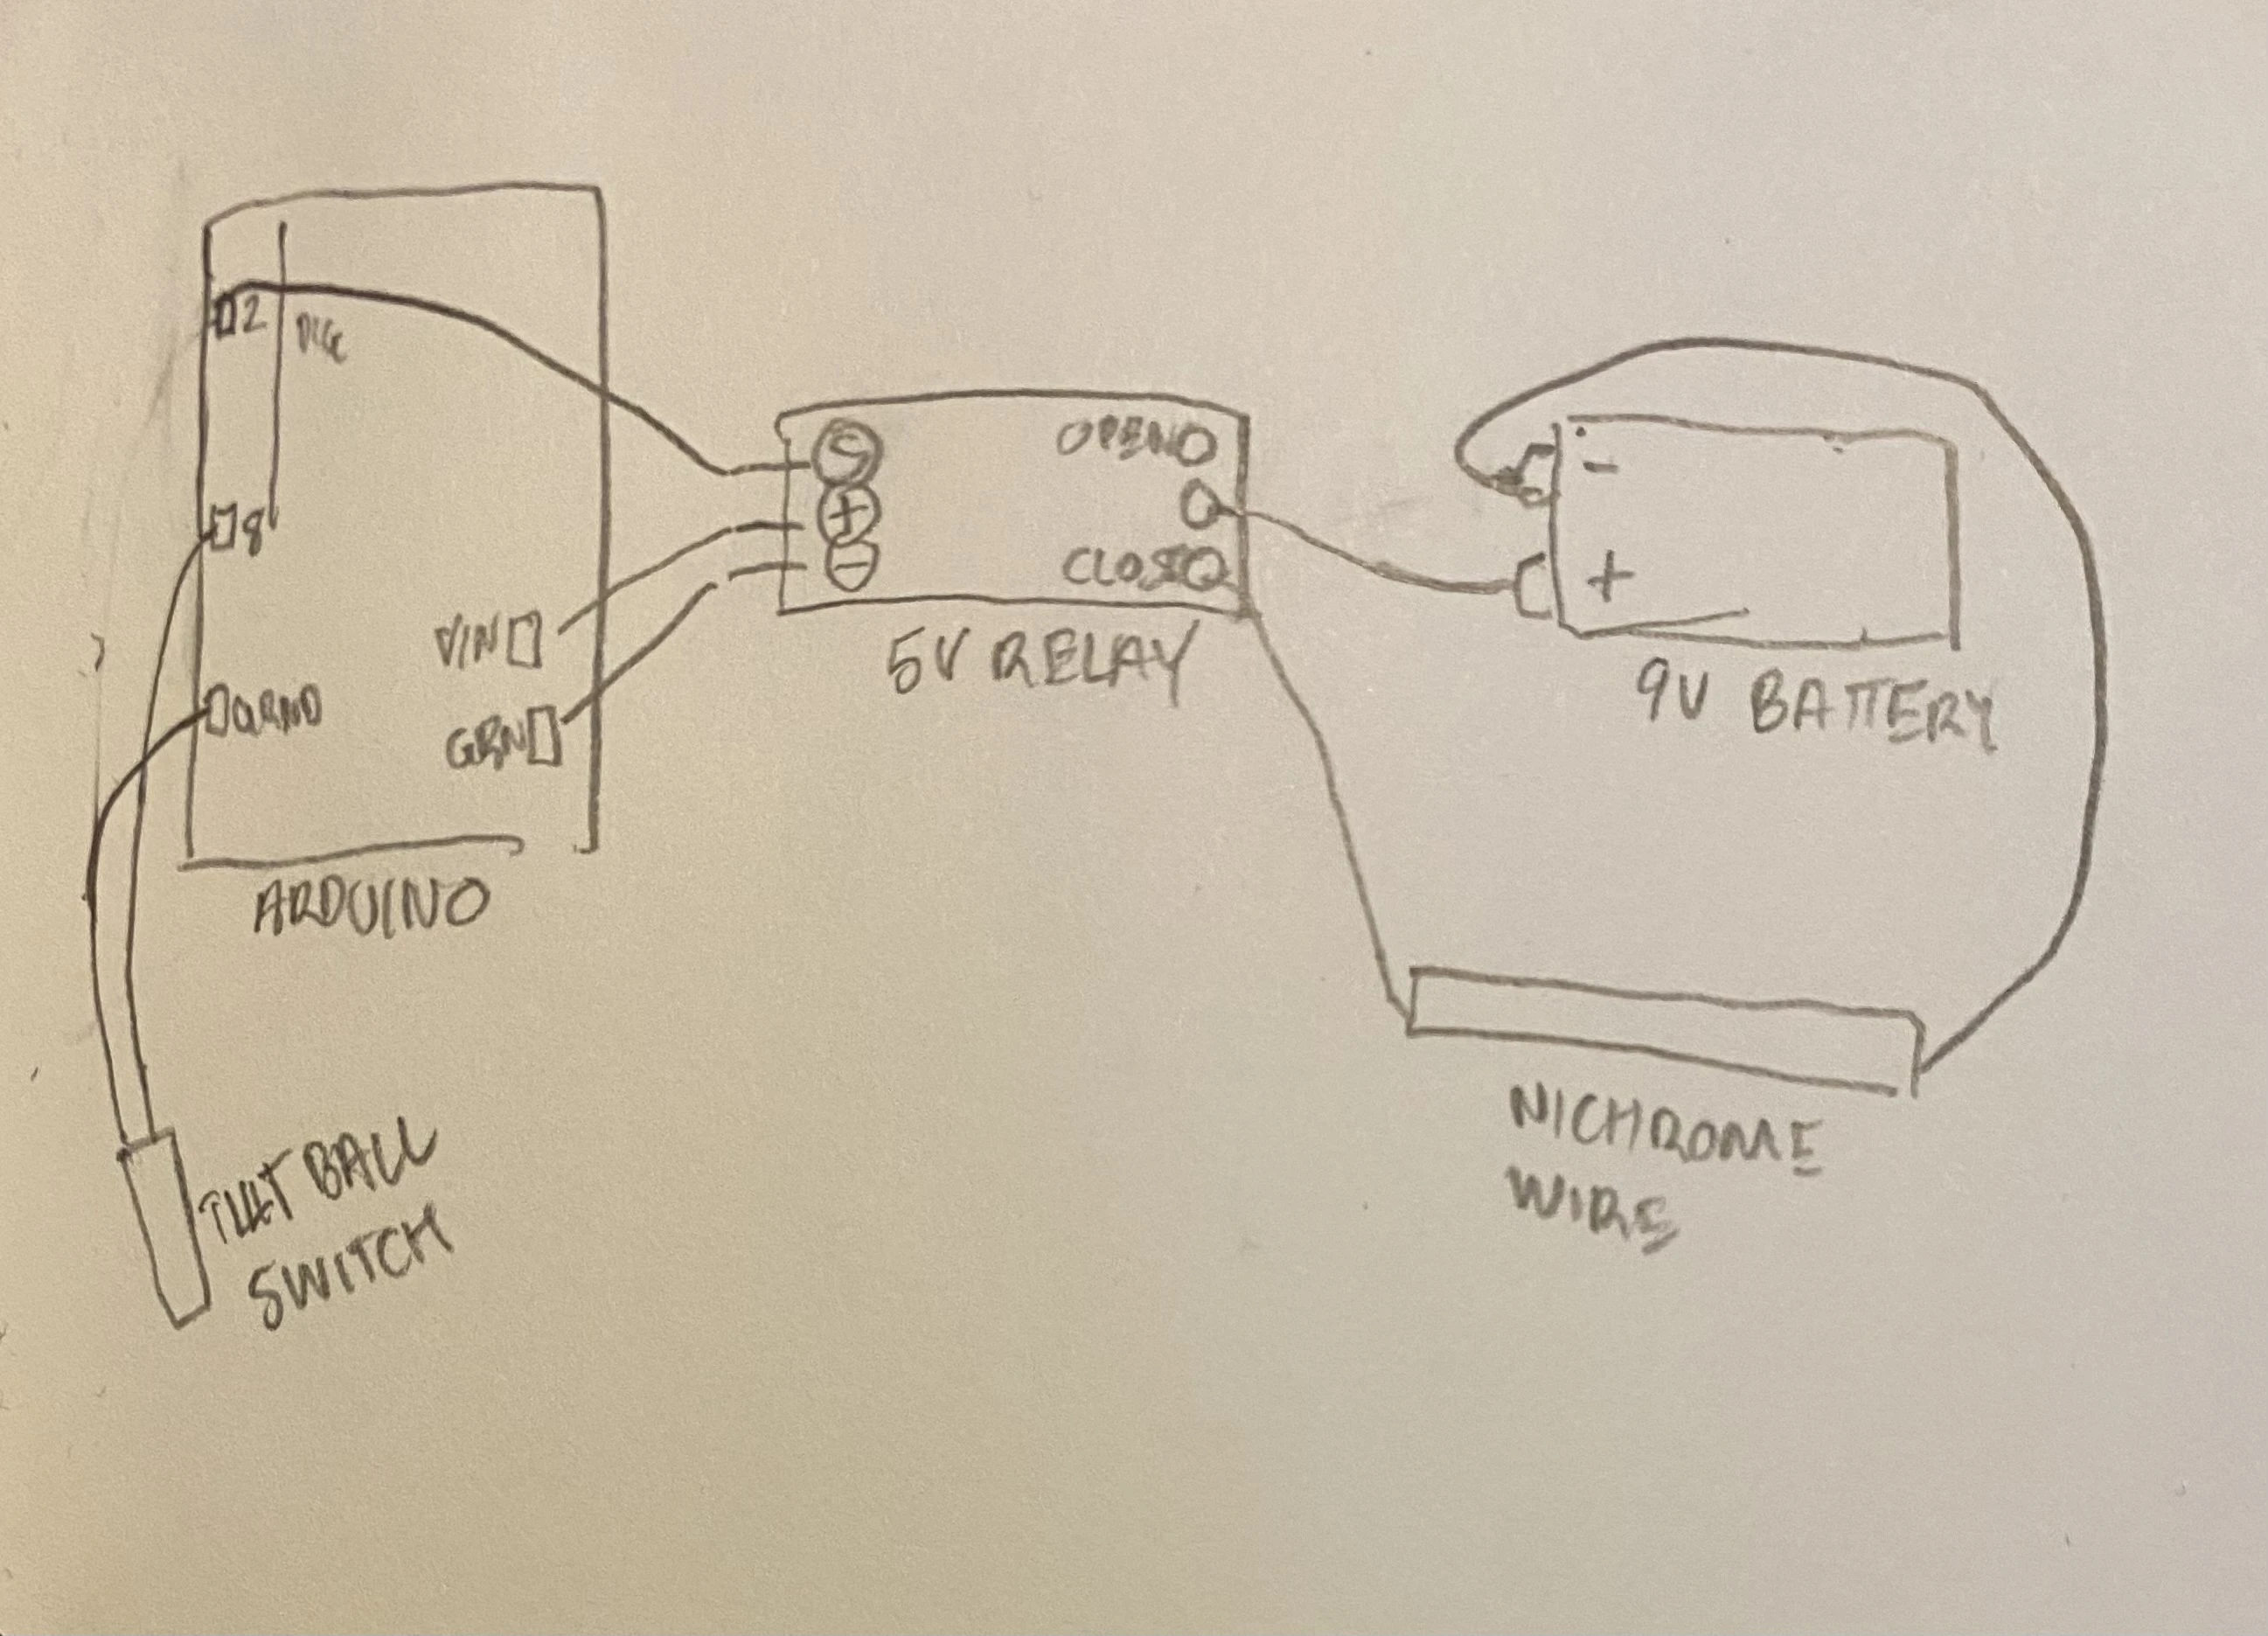 2
8
GRND
VIN
GRN
ARDUINO
S
+
−
OPEN
CLOSE
5V RELAY
-
+
9V BATTERY
NICHROME
WIRE
TILT BALL
SWITCH